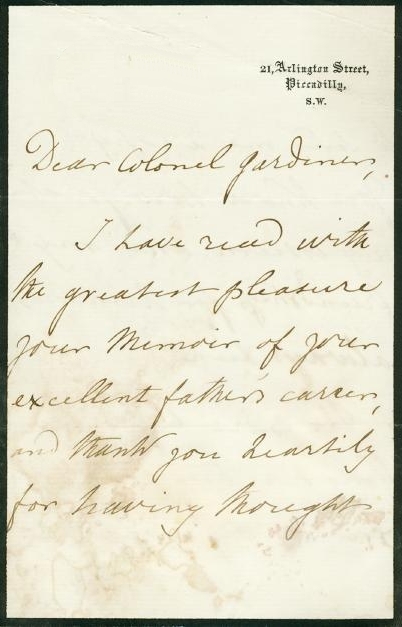 21, Arlington Street,
Piccadilly,
S.W.
Dear Colonel Gardiner,
I have read with
the greatest pleasure
your Memoir of your
excellent father's career,
and thank you heartily
for having thought